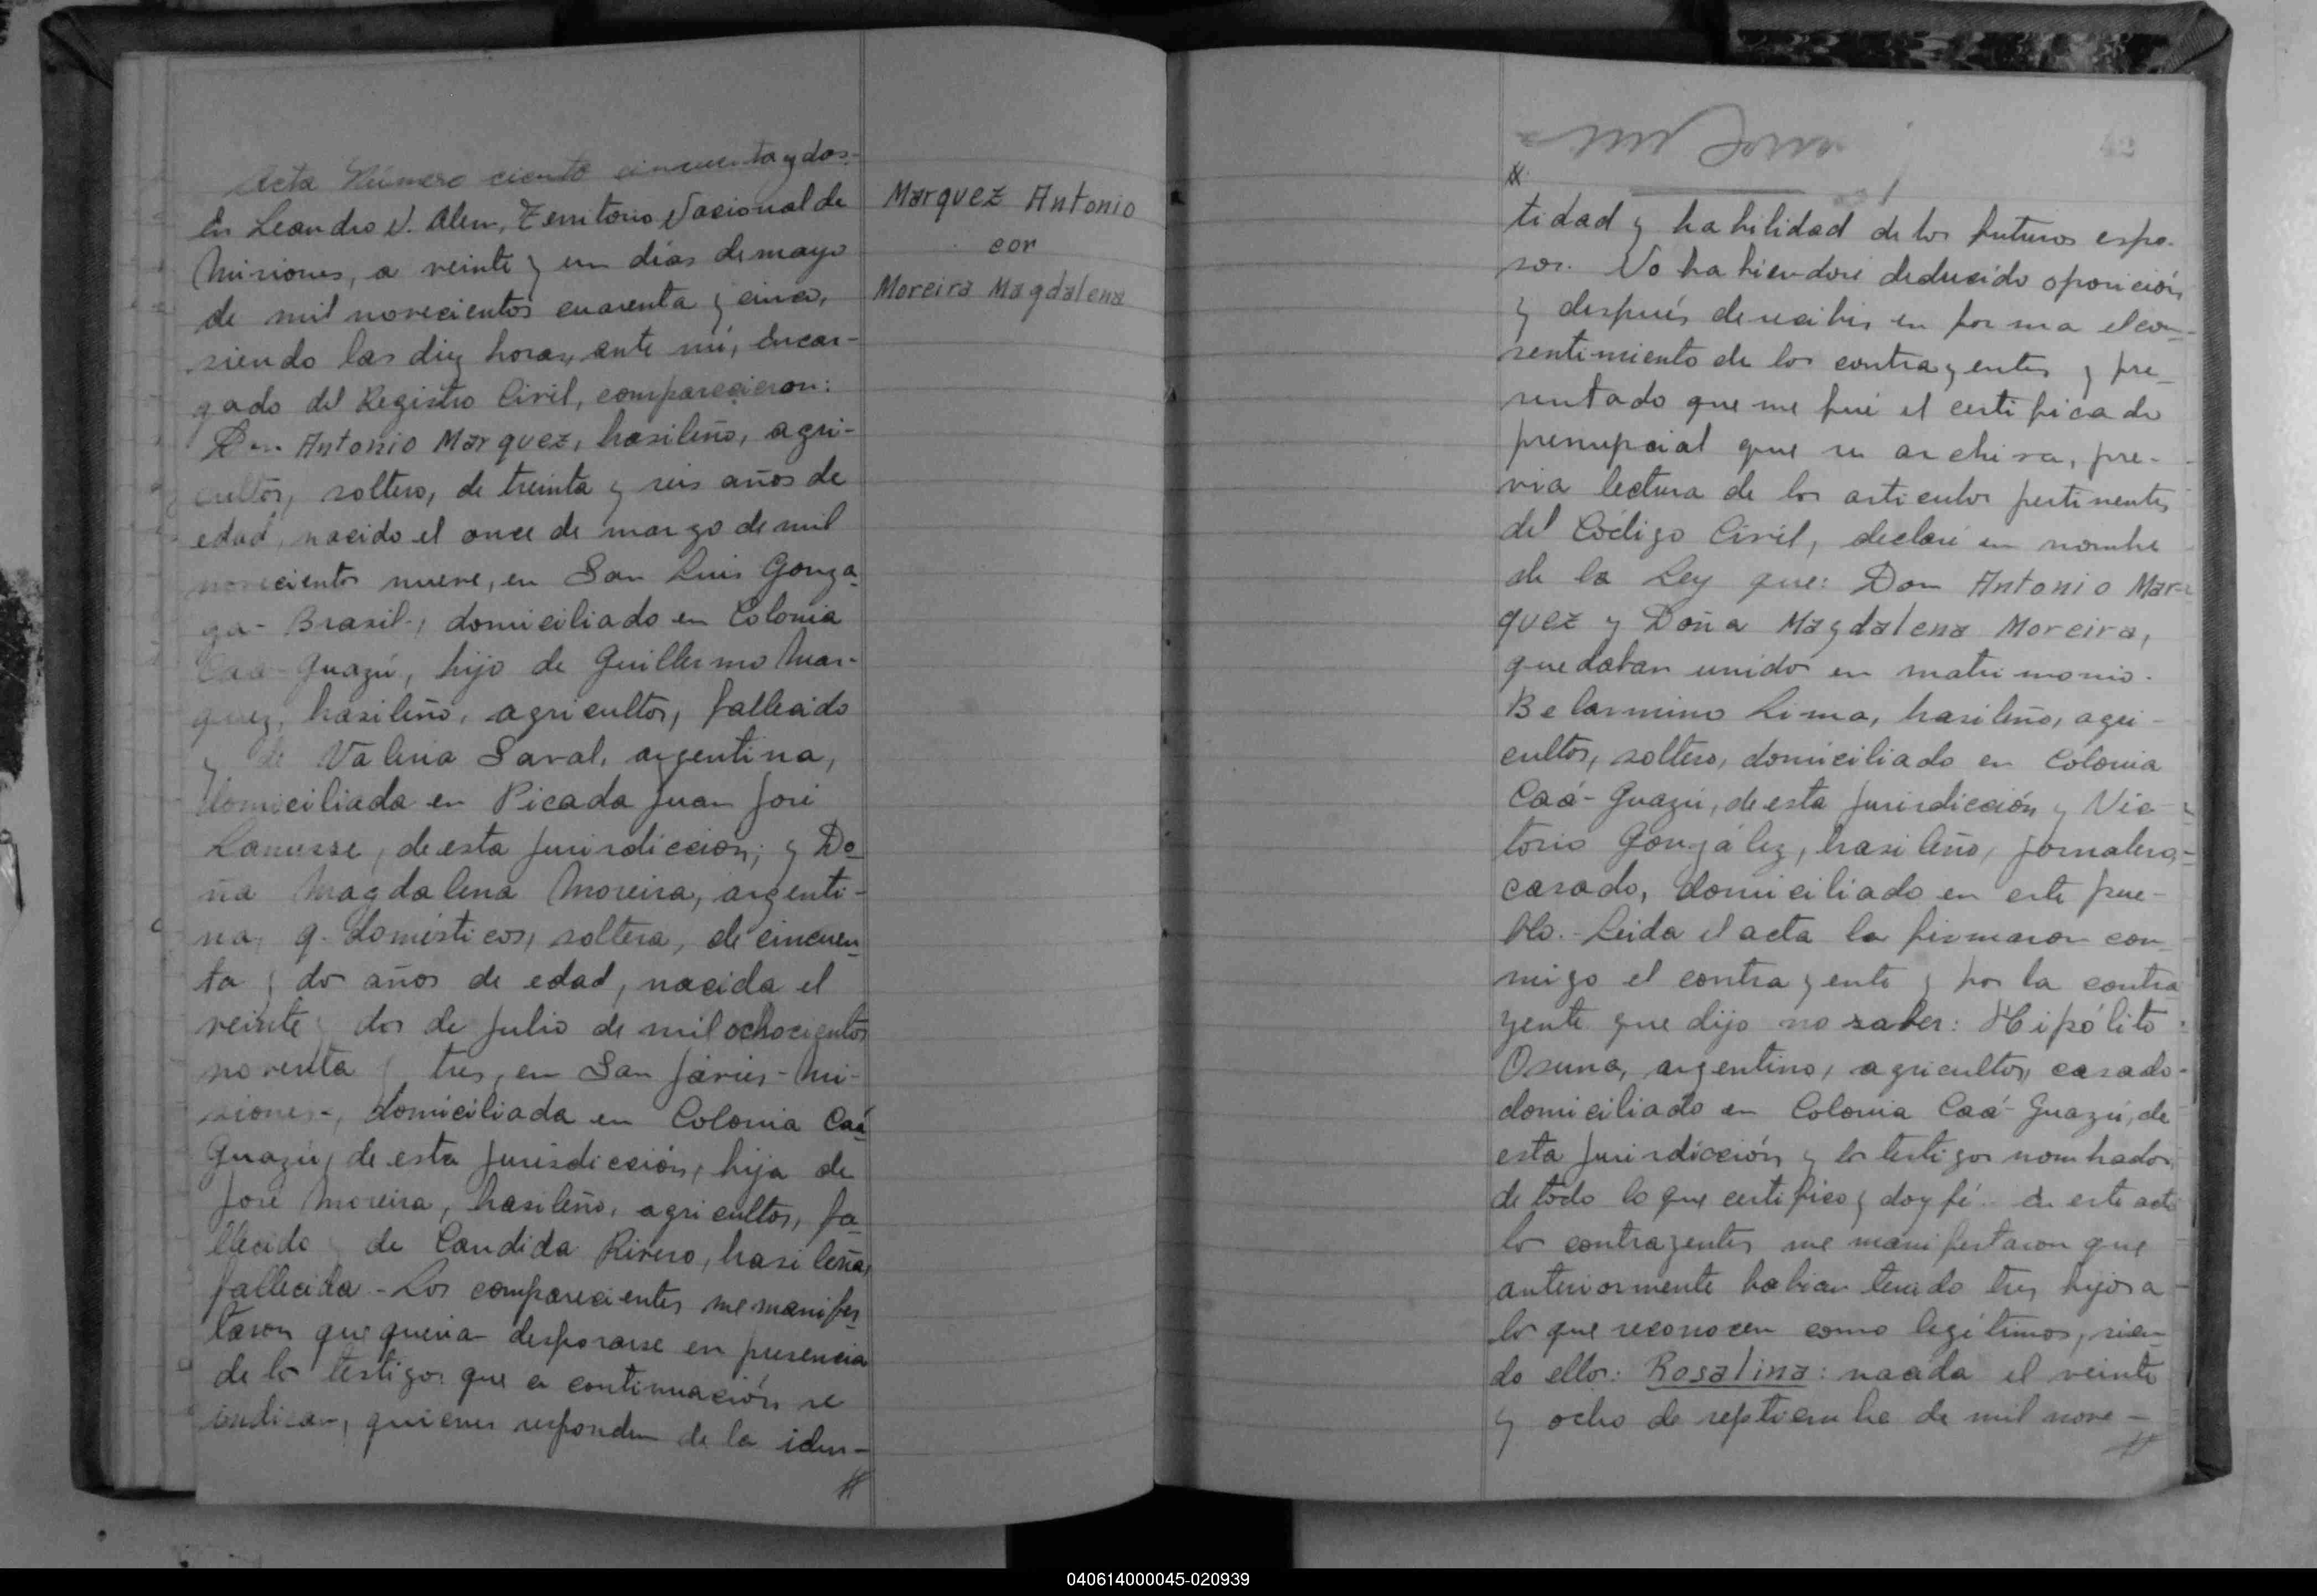 Acta Número ciento cincuenta y dos.-
En Leandro N. Alem, Territorio Nacional de
Misiones, a veinte y un dias de mayo
de mil novecientos cuarenta y cinco,
siendo las diez horas, ante mi, Encar-
gado del Registro Civil, comparecieron:
Don Antonio Marquez, brasileño, agri-
cultor, soltero, de treinta y seis años de
edad, nacido el once de marzo de mil
novecientos nueve, en San Luis Gonza-
ga - Brasil-, domiciliado en Colonia
Caá-Guazú, hijo de Guillermo Mar-
quez, brasileño, agricultor, fallecido
y de Valeria Saral, argentina,
domiciliada en Picada Juan José
Lanusse, de esta Jurisdicción; y Do-
ña Magdalena Moreira, argenti-
na, q. domésticos, soltera, de cincuen-
ta y dos años de edad, nacida el
veinte y dos de Julio de mil ochocientos
noventa y tres, en San Javier - Mi-
siones-, domiciliada en Colonia Caá
Guazú, de esta Jurisdicción, hija de
José Moreira, brasileño, agricultor, fa-
llecido y de Candida Rivero, brasileña,
fallecida.- Los comparecientes me manifes-
taron que querian desposarse en presencia
de los testigos que a continuación se
indican, quienes responden de la iden-
#
Marquez Antonio
con
Moreira Magdalena
42
#
tidad y habilidad de los futuros espo-
sos. No habiendose deducido oposición
y después de recibir en forma el con-
sentimiento de los contrayentes y pre-
sentado que me fué el certificado
prenupcial que se archiva, pre-
via lectura de los articulos pertinentes
del Código Civil, declaré en nombre
de la Ley que: Don Antonio Mar-
quez y Doña Magdalena Moreira,
quedaban unidos en matrimonio.
Belarmino Lima, brasileño, agri-
cultor, soltero, domiciliado en Colonia
Caá-Guazú, de esta Jurisdicción y Vic-
torio González, brasileño, jornalero,
casado, domiciliado en este pue-
blo.- Leida el acta la firmaron con-
migo el contrayente y por la contra
yente que dijo no saber: Hipólito
Osuna, argentino, agricultor, casado-
domiciliado en Colonia Caá-Guazú, de
esta Jurisdicción y los testigos nombrados
de todo lo que certifico y doy fé.- En este acto
los contrayentes me manifestaron que
anteriormente habian tenido tres hijos a
los que reconocen como legítimos, sien-
do ellos: Rosalina: nacida el veinte
y ocho de septiembre de mil nove-
#
040614000045-020939